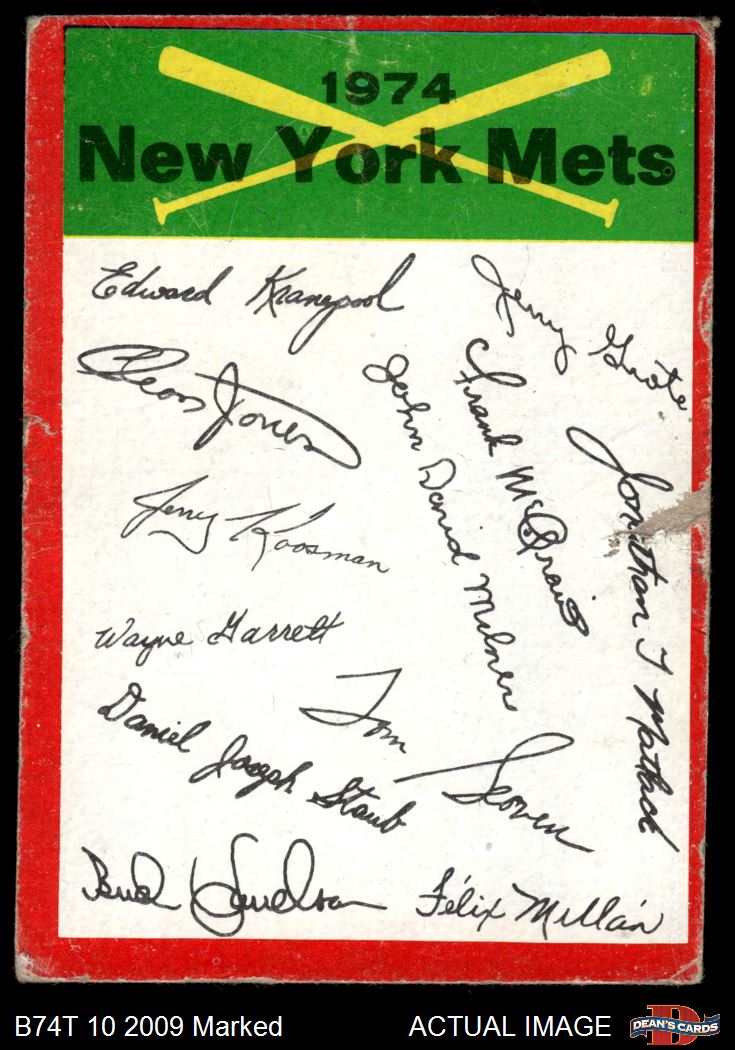 1974
New York Mets
Edward Kranepool
Jerry Grote
Cleon Jones
John David Milner
Frank McGraw
Jonathan T Matlack
Jerry Koosman
Wayne Garrett
Tom Seaver
Daniel Joseph Staub
Bud Harrelson
Félix Millán
B74T 10 2009 Marked
ACTUAL IMAGE
DEAN'S CARDS